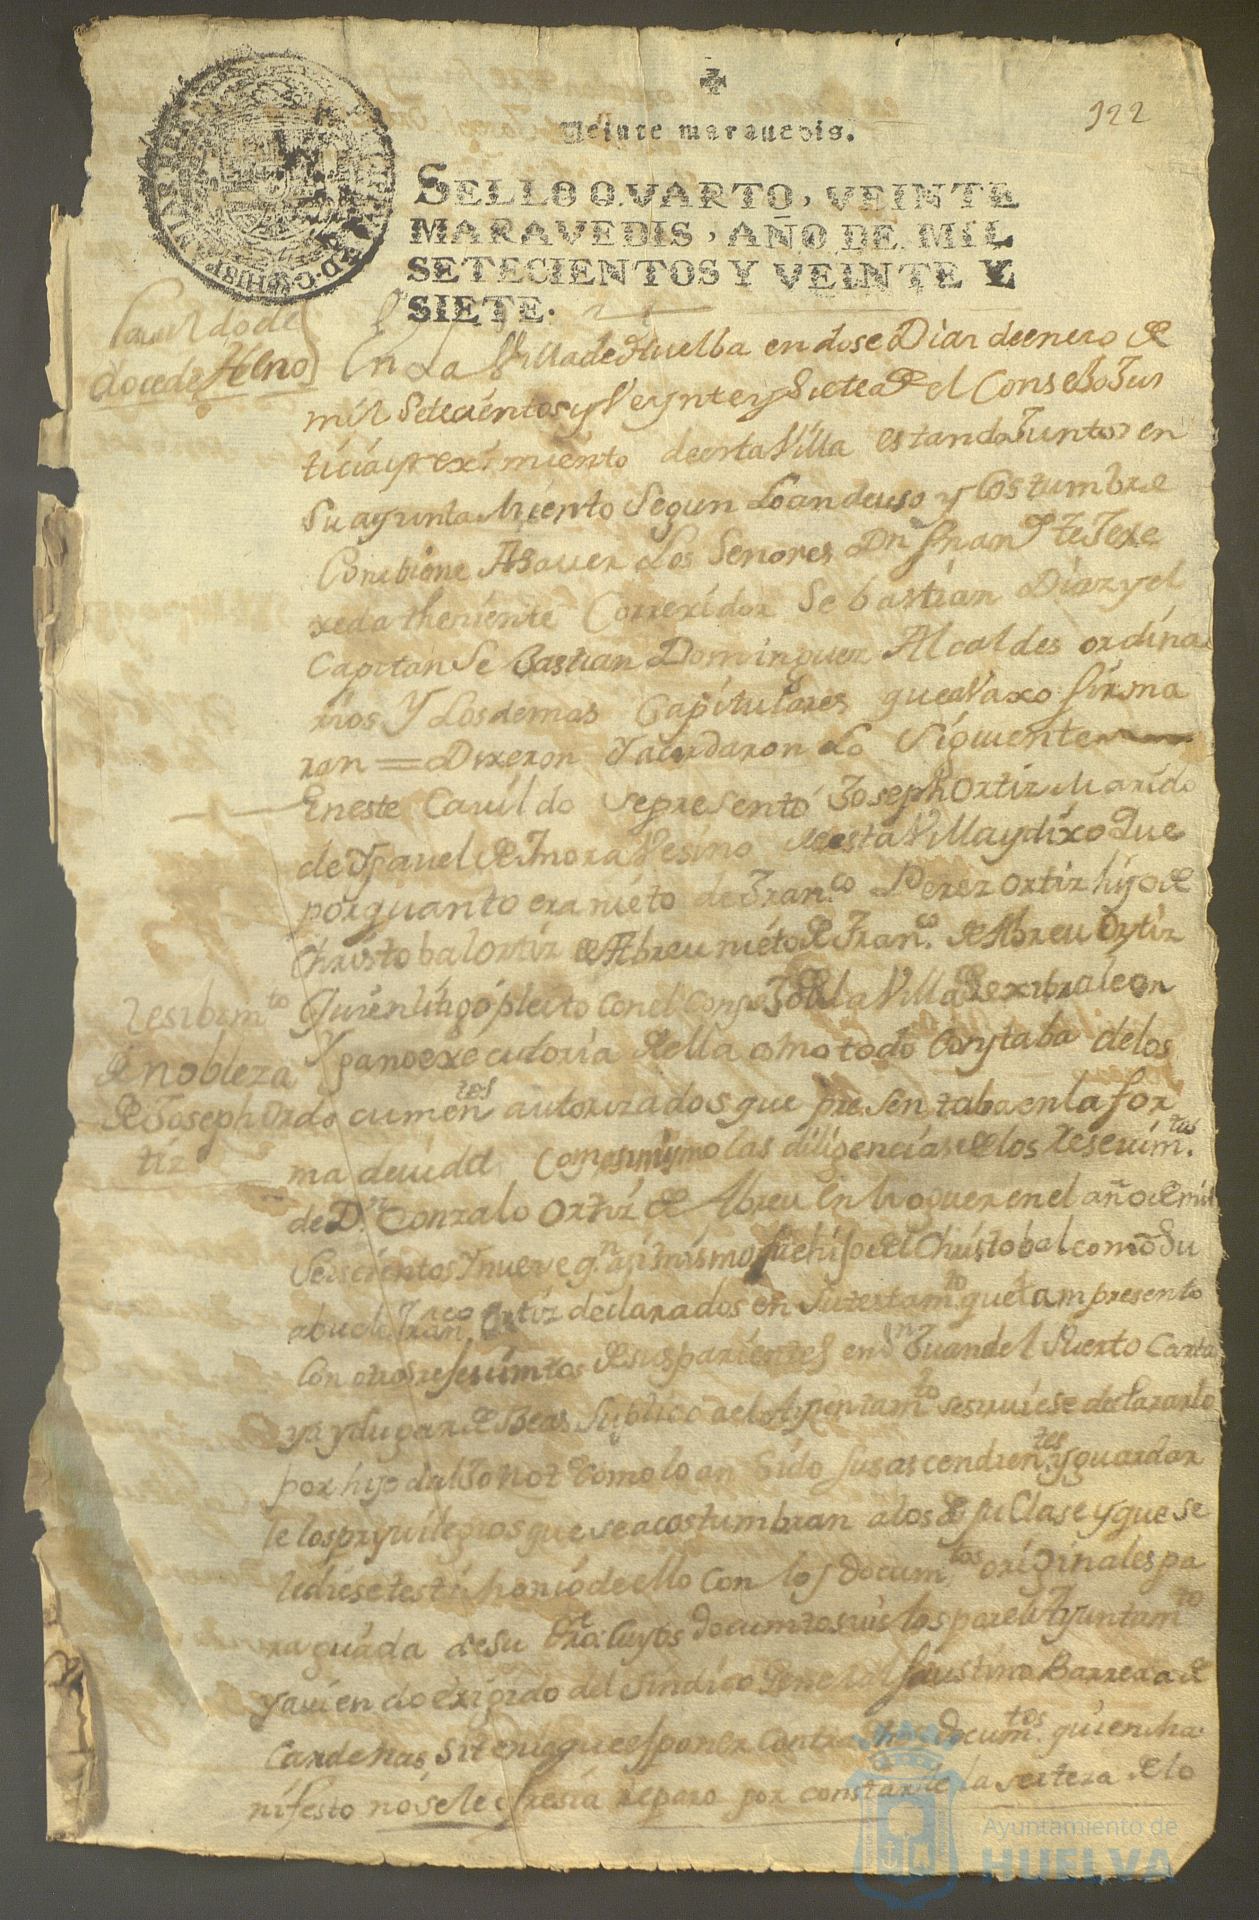 122
Veinte maravedis.
SELLO QVARTO, VEINTE
MARAVEDIS, AÑO DE MIL
SETECIENTOS Y VEINTE Y
SIETE.
Cauildo de
doce de Heno
En La Villa de Huelba en dose Dias de enero de
mil Setecientos y Veynte y Siete a° el Consejo Jus
ticia y reximiento de esta Villa estando Juntos en
Su ayuntamiento Segun Lo an de uso y Costumbre
Conbiene Asauer Los Senores Dn Fran^co de Texe
xeda theniente Correxidor Sebastian Diaz y el
Capitan Sebastian Dominguez Alcaldes ordina
rios Y Los demas Capitulares que aVaxo firma
ran = Dixeron Y acordaron Lo Siguiente
En este Cauildo se presento Joseph Ortiz Marido
de Ysauel de Mora Vesino de esta Villa y dixo Que
por quanto era nieto de Fran.co Perez Ortiz hijo de
Christobal Ortiz de Abreu nieto de Fran.co de Abreu Ortiz
Quien litigó pleito con el Consejo de la Villa de xibraleon
Y gano executoria de ella como todo Constaba de los
Resibim^to
de nobleza
de Joseph Or
tiz
documen^tos autorizados que presentaba en la for
ma deuida Como asimismo las diligencias de los Reseuim.^tos
de D.n Gonzalo Ortiz de Abreu en Moguer en el año de mil
Seiscientos Y nueve q.n asimismo fue hijo del Christobal como Su
abuelo Fran^co Ortiz declarados en Su testam^to que tam presento
Con otros reseuimtos de sus parientes en Sn Juan del Puerto Carta
ya y Lugar de Beas Suplico a el Ayuntam^to se siruiese declararlo
por hijo dalgo not^o como lo an Sido sus ascendien^tes y guardar
le los priuilegios que se acostumbran a los de su Clase y que se
le diese testimonio de ello Con los docum^tos originales pa
ra guarda de su dro. Cuyos documtos uistos por el Ayuntam^to
Y auiendo exigido del Sindico General Faustino Barrera de
Cardenas, si tenia que esponer Contra dhos docum^tos. quien ma
nifesto no se le ofresia reparo por constarle la serteza de lo
Ayuntamiento de
HUELVA